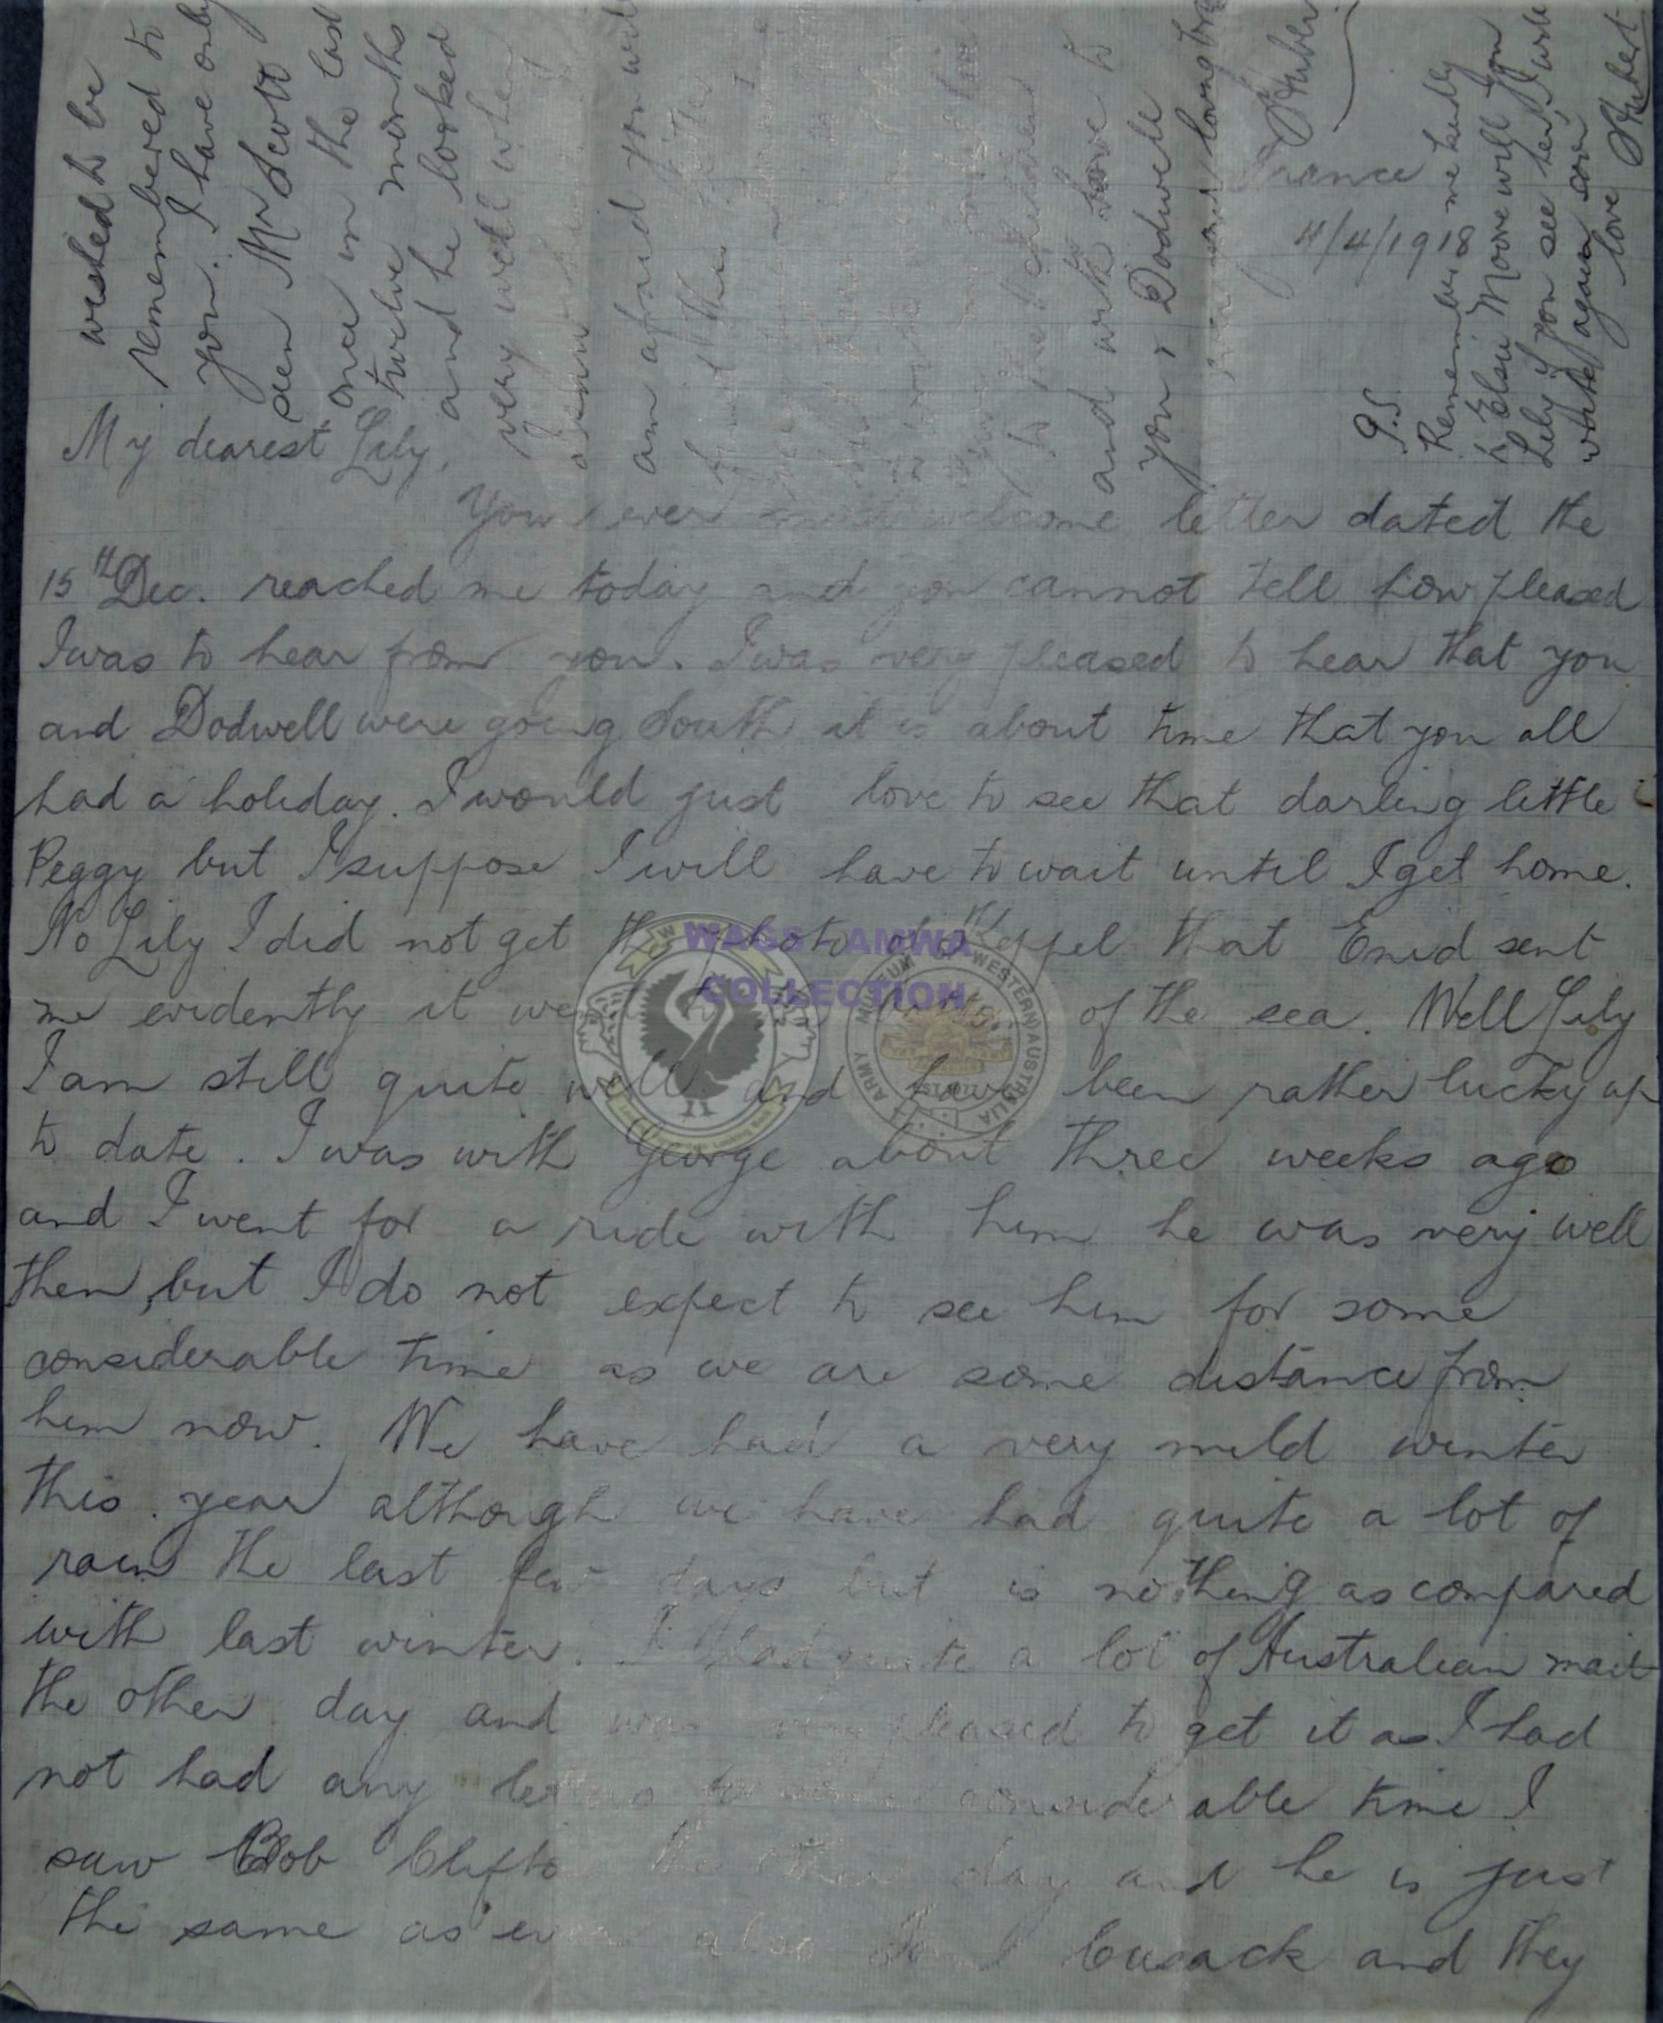 France
4/4/1918
My dearest Lily,
Your ever welcome letter dated the
15th Dec. reached me today and you cannot tell how pleased
I was to hear from you. I was very pleased to hear that you
and Dodwell were going South it is about time that you all
had a holiday. I would just love to see that darling little
Peggy but I suppose I will have to wait until I get home.
No Lily I did not get the photo of Keppel that Enid sent
me evidently it went to the of the sea. Well Lily
I am still quite well and have been rather lucky up
to date. I was with George about three weeks ago
and I went for a ride with him he was very well
then, but I do not expect to see him for some
considerable time as we are some distance from
him now. We have had a very mild winter
this year although we have had quite a lot of
rain the last few days but is nothing as compared
with last winter. I had quite a lot of Australian mail
the other day and was very pleased to get it as I had
not had any letters for some considerable time I
saw Bob Clifton the other day and he is just
the same as ever also Cusack and they
wished to be
remembered to
you. I have only
seen Mr Scott
once in the last
twelve months
and he looked
very well when
am afraid you will
to the children
and with love to
you & Dodwell
from your loving bro
Hubert
P.S.
Remember me kindly
to Elsie Moore will you
Lily if you see her, I will
write again soon
love Hubert
WAGS AMWA
COLLECTION
ARMY MUSEUM OF WESTERN AUSTRALIA